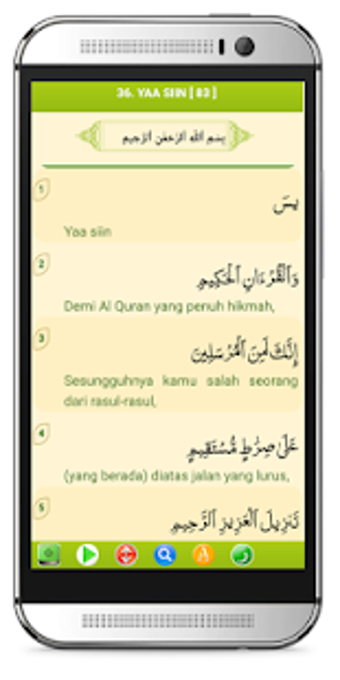 36. YAA SIIN [ 83 ]
بِسْمِ اللَّهِ الرَّحْمَٰنِ الرَّحِيمِ
1
يسٓ
Yaa siin
2
وَٱلْقُرْءَانِ ٱلْحَكِيمِ
Demi Al Quran yang penuh hikmah,
3
إِنَّكَ لَمِنَ ٱلْمُرْسَلِينَ
Sesungguhnya kamu salah seorang
dari rasul-rasul,
4
عَلَىٰ صِرَٰطٍ مُّسْتَقِيمٍ
(yang berada) diatas jalan yang lurus,
5
تَنزِيلَ ٱلْعَزِيزِ ٱلرَّحِيمِ